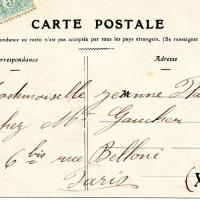 CARTE POSTALE
pondance au recto n'est pas acceptée par tous les pays étrangers. (Se renseigner
orrespondance
Adresse
ademoiselle Jeanne
hez Mr Gaucher
6 bis rue Belloni
Paris
(X